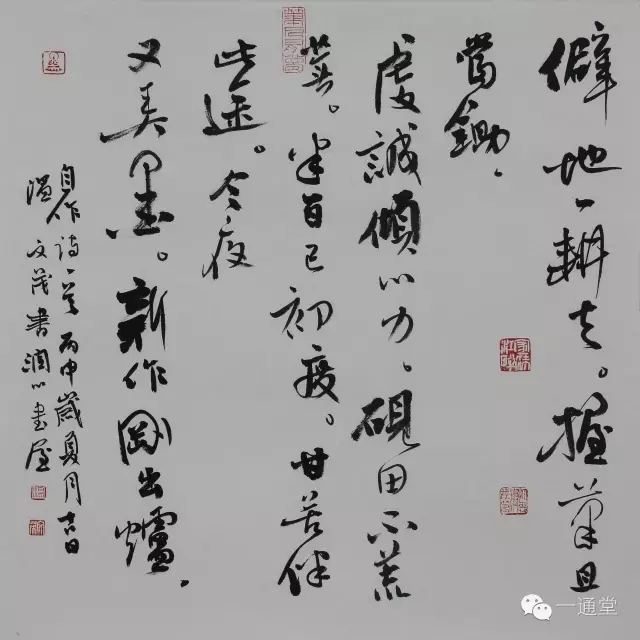 僻地一耕夫。握筆且
當鋤、
虔誠傾心力、硯田不荒
蕪。半百已初度。甘苦伴
此途。今夜
又弄墨。新作剛出爐、
自作詩一首丙申歲夏月吉日
溫文茂書潤心書屋
一通堂